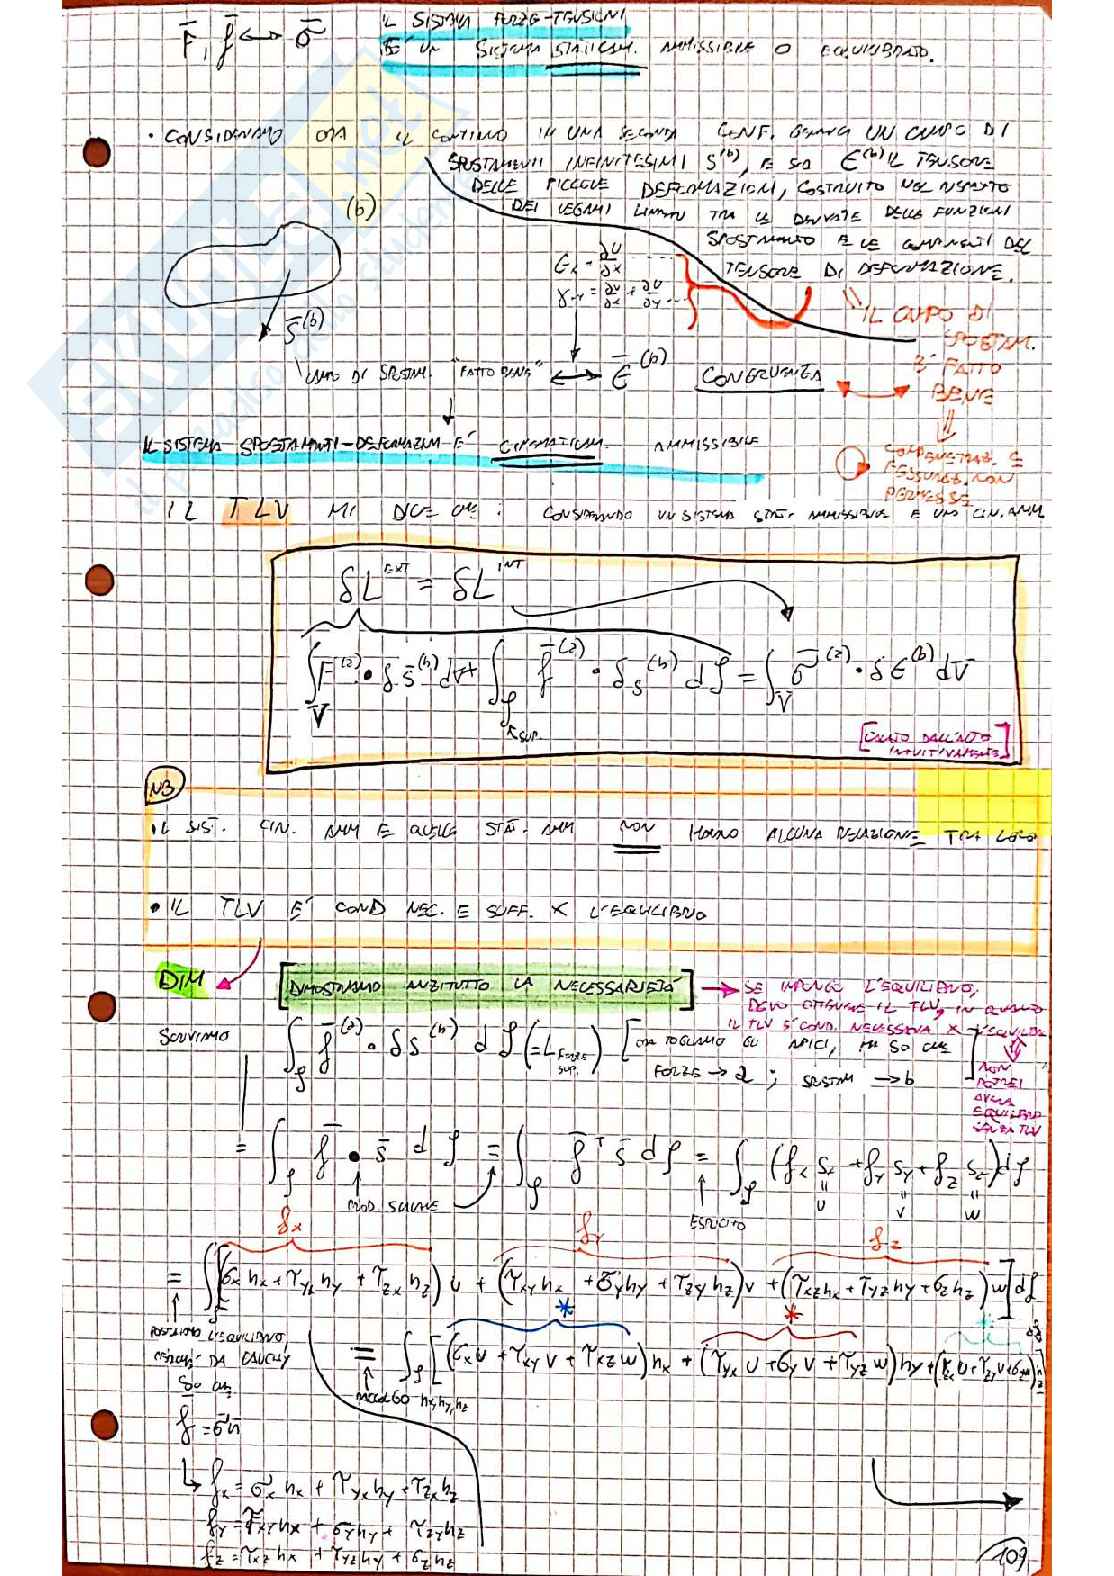 F̄, f̄ ↔ σ̄
IL SISTEMA FORZE-TENSIONI
E' UN SISTEMA STATICAM. AMMISSIBILE O EQUILIBRATO.
• CONSIDERIAMO ORA IL CONTINUO IN UNA SECONDA CONF. GENERICA UN CAMPO DI
SPOSTAMENTI INFINITESIMI S^(b), E SIA ε^(b) IL TENSORE
DELLE PICCOLE DEFORMAZIONI, COSTRUITO NEL RISPETTO
DEI LEGAMI LINEARI TRA LE DERIVATE DELLE FUNZIONI
SPOSTAMENTO E LE COMPONENTI DEL
TENSORE DI DEFORMAZIONE.
(b)
εx = ∂U/∂x
γxy = ∂U/∂x + ∂U/∂y
S̄^(b)
IL CAMPO DI
SPOSTAM.
E' FATTO
BENE
CAMPO DI SPOSTAM. "FATTO BENE" ↔ ε̄^(b) CONGRUENZA
IL SISTEMA SPOSTAMENTI-DEFORMAZIONI E' CINEMATICAM. AMMISSIBILE
COMPENETRAZ. E
FESSURAZ. NON
PERMESSE
IL TLV MI DICE CHE: CONSIDERANDO UN SISTEMA STAT. AMMISSIBILE E UNO CIN. AMM
δL^EXT = δL^INT
∫_V F̄^(a) • δs̄^(b) dV + ∫_S f̄^(a) • δs^(b) dS = ∫_V σ̄^(a) • δε^(b) dV
SUP.
[CALATO DALL'ALTO
INTUITIVAMENTE]
NB
• IL SIST. CIN. AMM E QUELLO STAT. AMM NON HANNO ALCUNA RELAZIONE TRA LORO
• IL TLV E' COND NEC. E SUFF. X L'EQUILIBRIO
DIM
[DIMOSTRIAMO ANZITUTTO LA NECESSARIETÀ]
→ SE IMPONGO L'EQUILIBRIO,
DEVO OTTENERE IL TLV, IN QUANTO
IL TLV E' COND. NECESSARIA X L'EQUILIBRIO
NON
POTREI
AVERE
EQUILIBRIO
SENZA TLV
SCRIVIAMO ∫_S f̄^(a) • δs^(b) dS (= L FORZE SUP.) [ORA TOGLIAMO GLI APICI, MA SO CHE
FORZE → a ; SPOSTAM → b]
= ∫_S f̄ • s̄ dS = ∫_S f̄^T s̄ dS = ∫_S (fx sx + fy sy + fz sz) dS
PROD SCALARE
ESPLICITO
U V W
fx fy fz
= ∫_S [(σx nx + τyx ny + τzx nz) u + (τxy nx + σy ny + τzy nz) v + (τxz nx + τyz ny + σz nz) w] dS
* * *
L'EQUILIBRIO,
DA CAUCHY
SO CHE
f̄ = σ̄ n̄
= ∫_S [(σx u + τxy v + τxz w) nx + (τyx u + σy v + τyz w) ny + (τzx u + τzy v + σz w) nz] dS
RACCOLGO nx, ny, nz
fx = σx nx + τyx ny + τzx nz
fy = τxy nx + σy ny + τzy nz
fz = τxz nx + τyz ny + σz nz
109